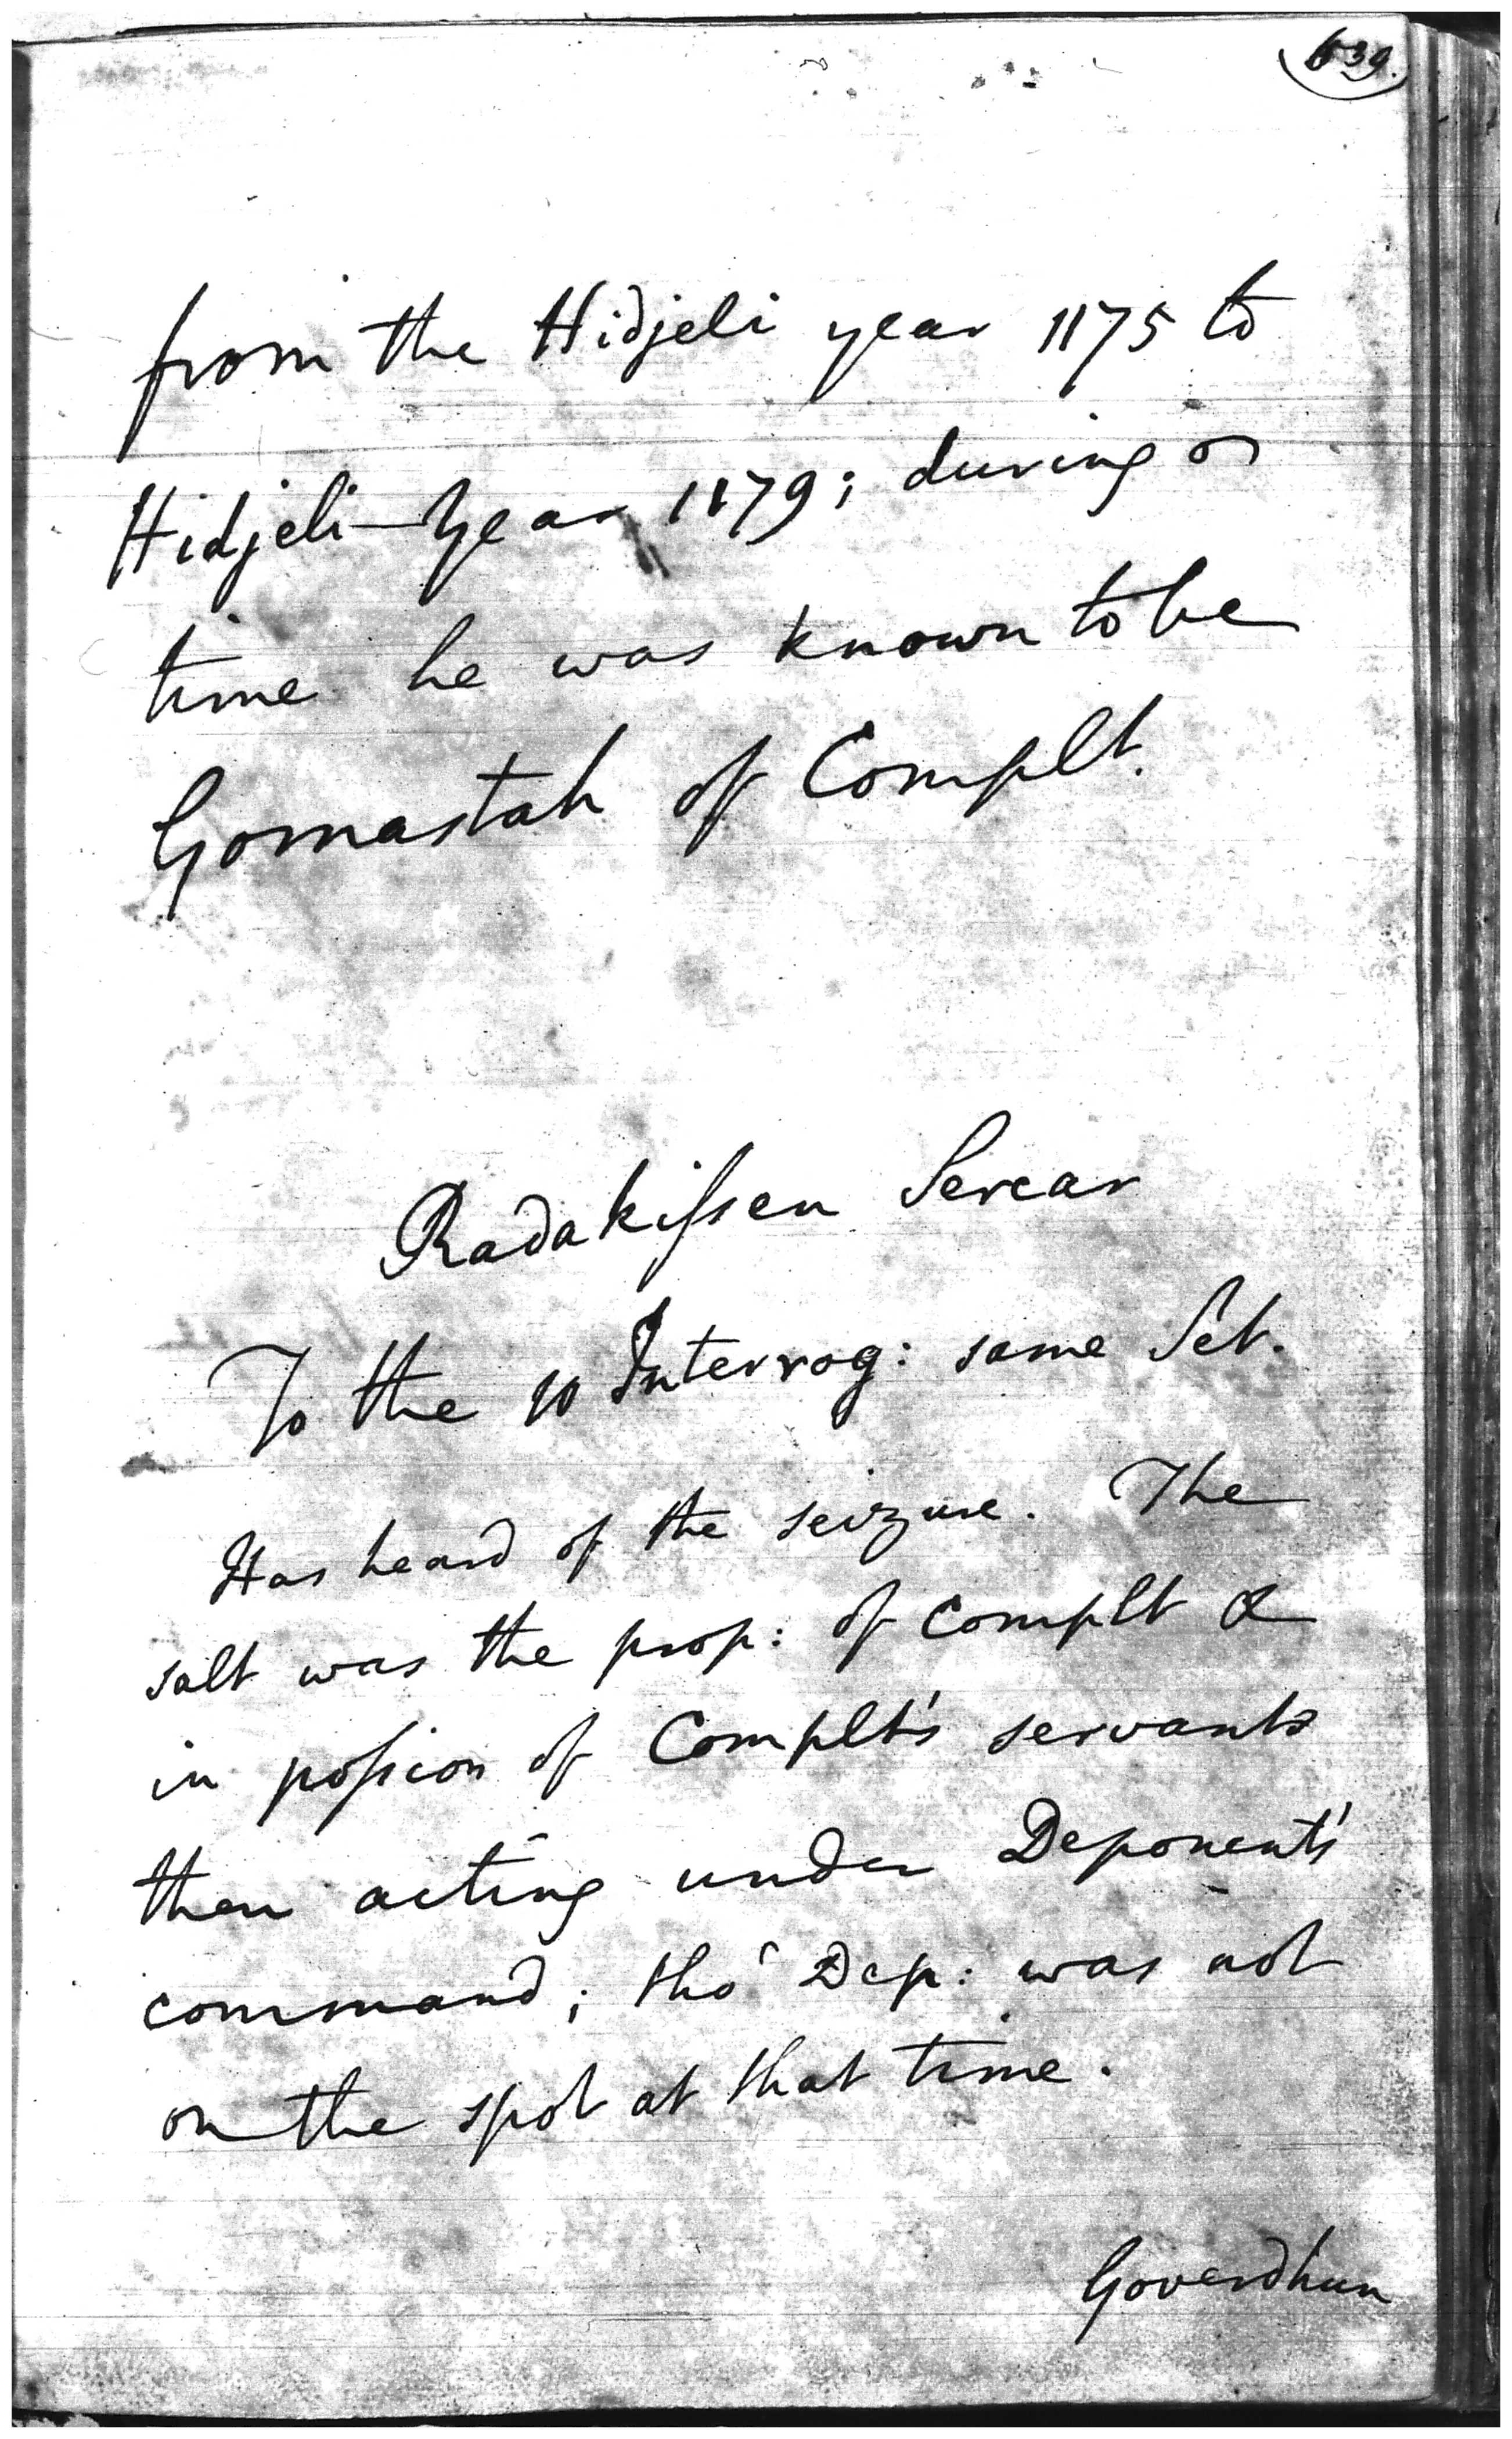 639.
from the Hidjeli year 1175 to
Hidjeli Year 1179; during
time he was known to be
Gomastah of Complt.
Radakissen Sercar
To the 10 Interrog: same Set.
Has heard of the seizure. The
salt was the prop: of Complt &
in possion of Complt's servants
then acting under Deponent's
command; tho' Dep: was not
on the spot at that time.
Goverdhun